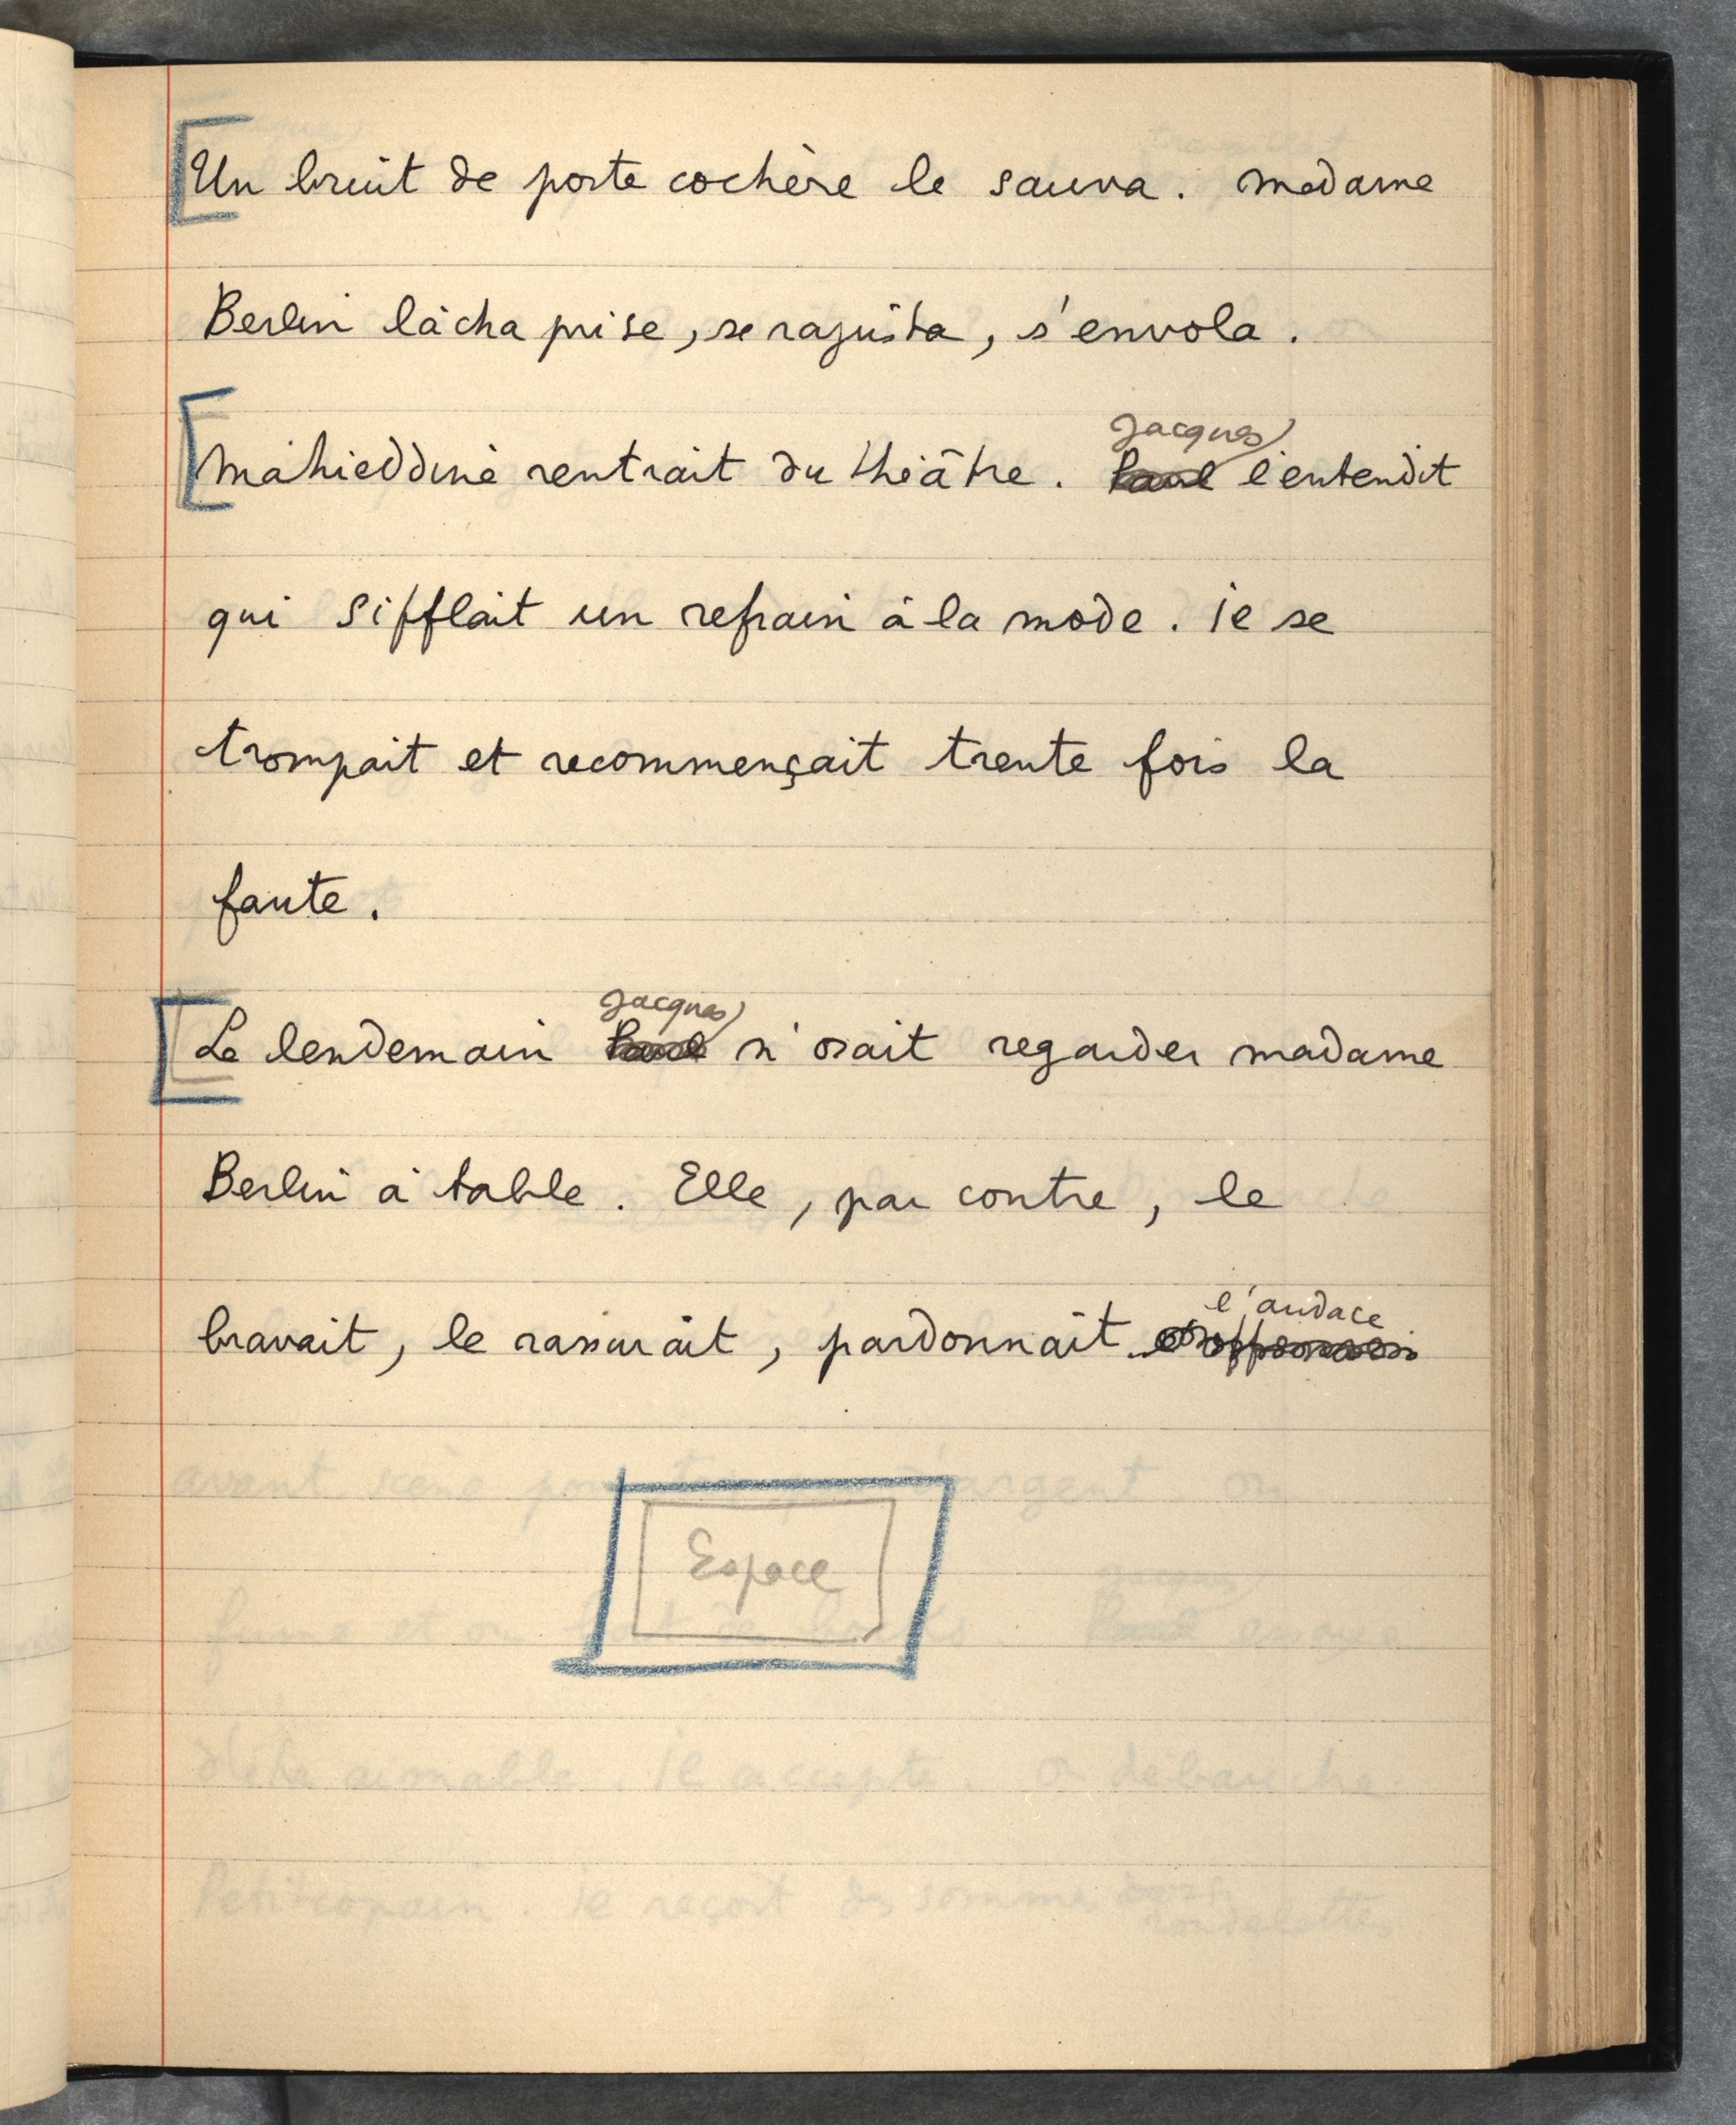 Un bruit de porte cochère le sauva. Madame
Berlin lâcha prise, se rajusta, s'envola.
Mahieddine rentrait du théâtre. Jacques l'entendit
qui sifflait un refrain à la mode. il se
trompait et recommençait trente fois la
faute.
Le lendemain Jacques n'osait regarder madame
Berlin à table. Elle, par contre, le
bravait, le rassurait, pardonnait l'audace
Espace